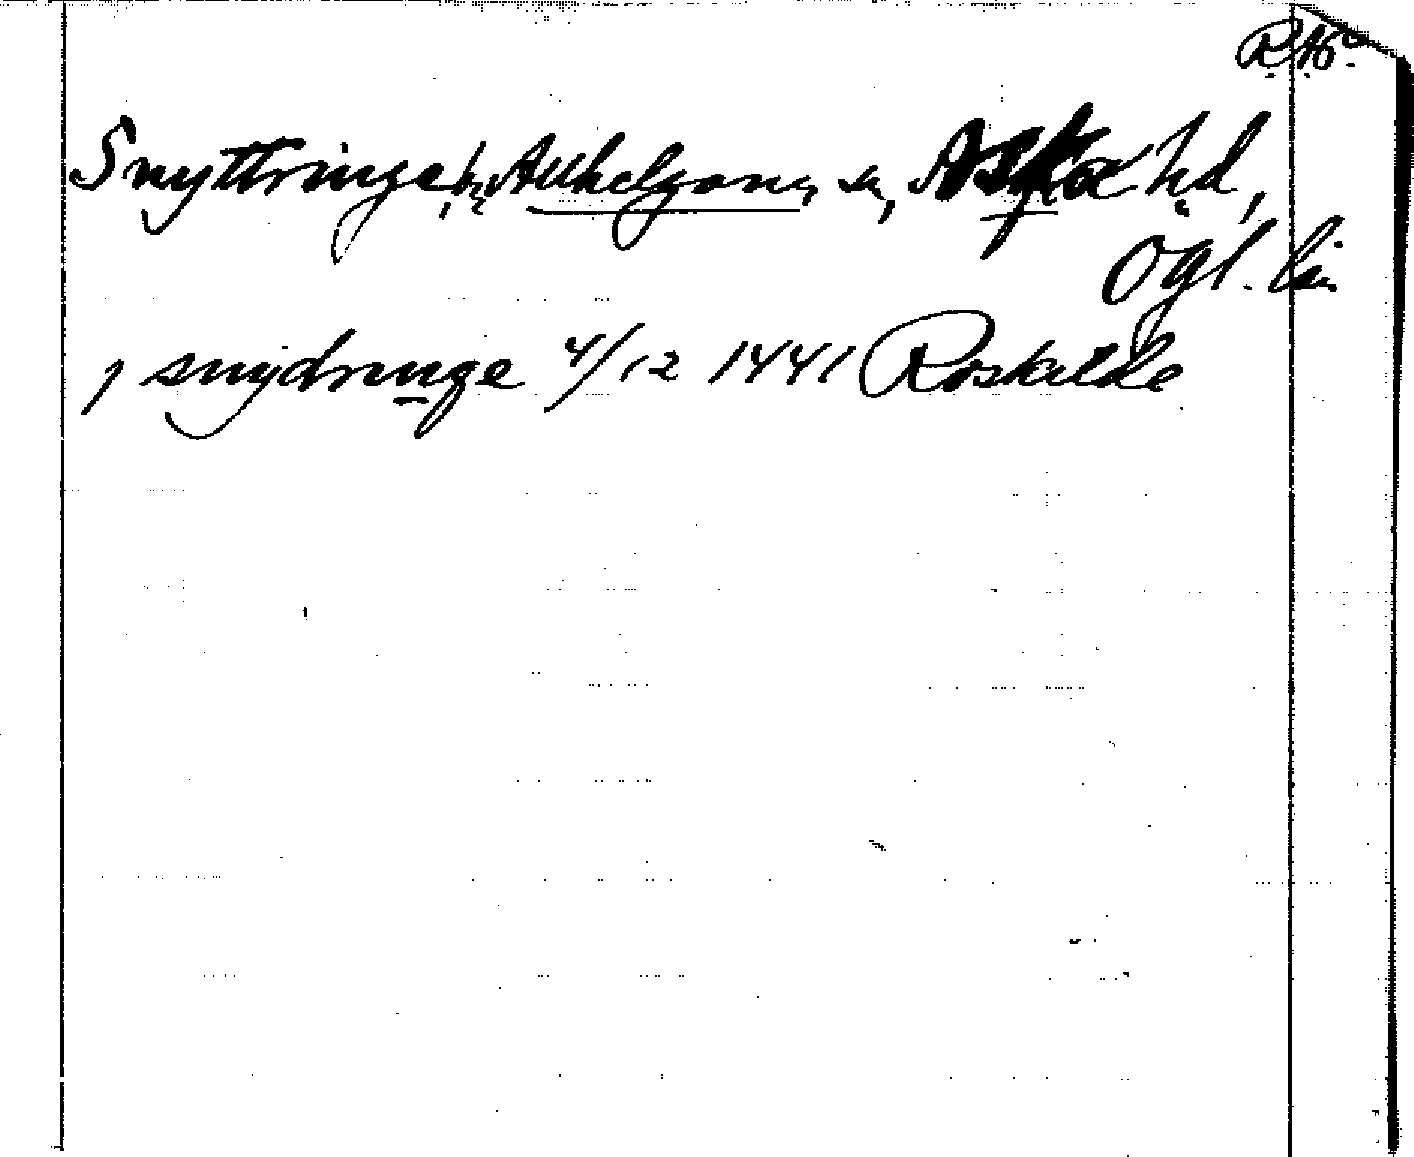 RAp
Snyttringe, by, Allhelgona, sn, Aska hd,
Ögl. län
j snydrunge 4/12 1441 Roskilde